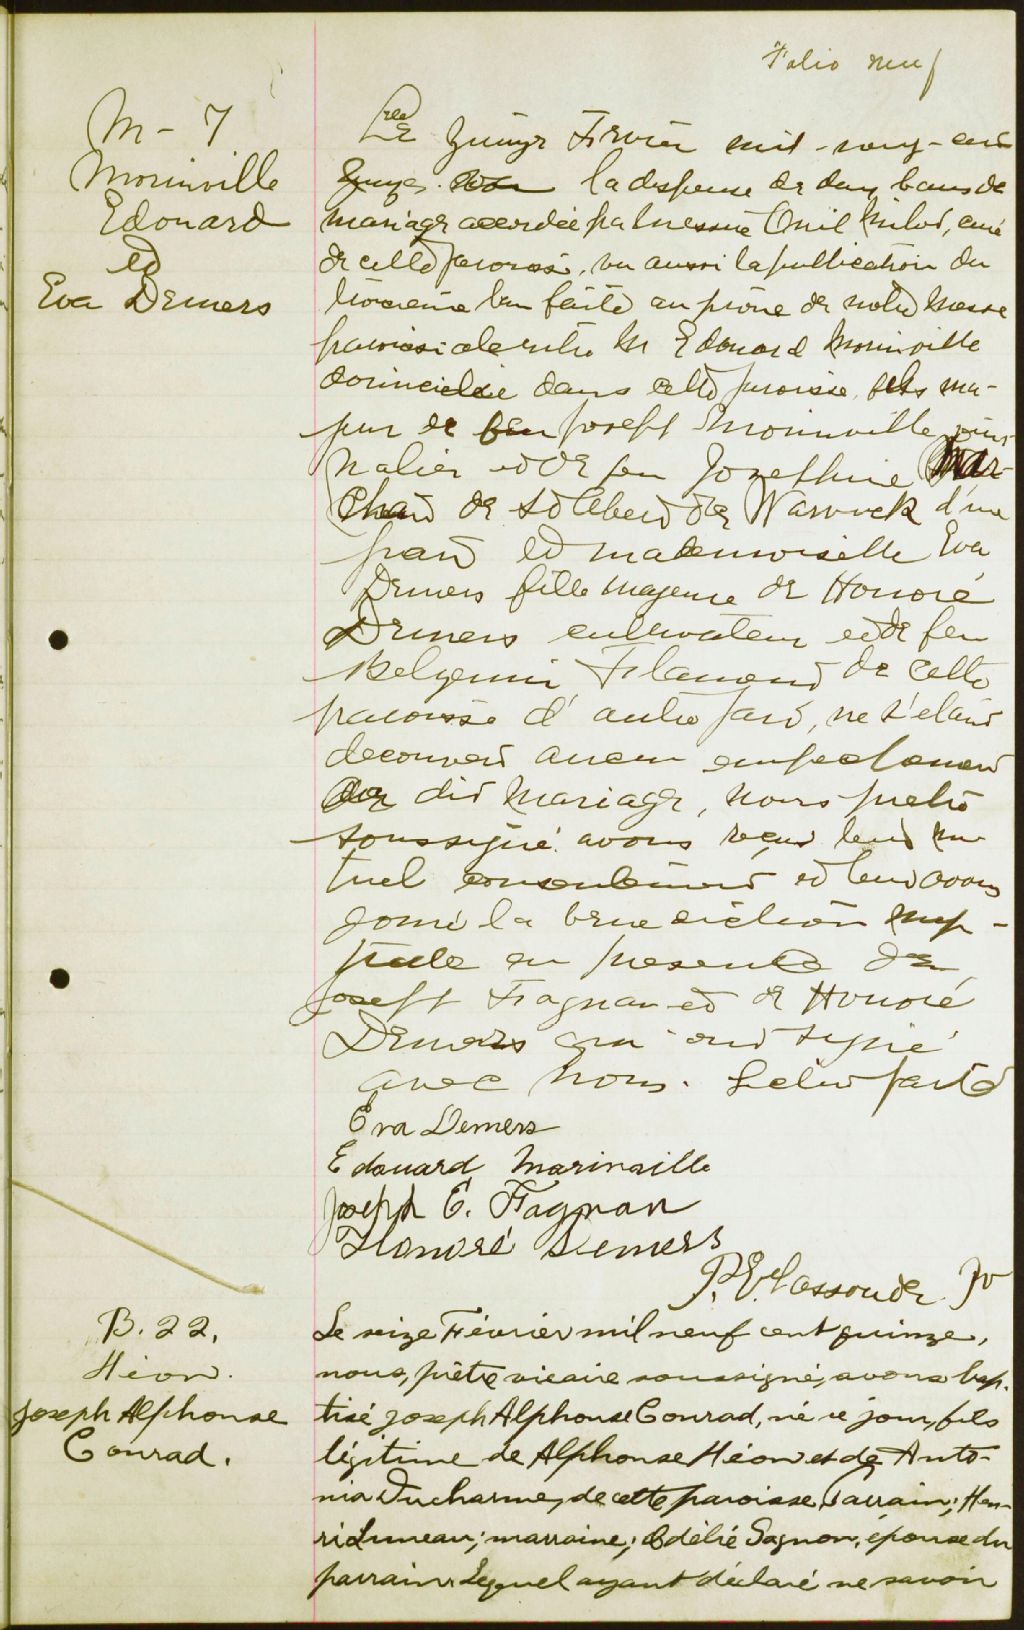 Folio neuf
M - 7
Morinville
Edouard
et
Eva Demers
Le quinze Février mil-neuf-cent
quinze. vu la dispense de deux bans de
mariage accordée par Messire Milot, curé
de cette paroisse, vu aussi la publication du
troisième ban faite au prône de notre Messe
paroissiale entre Mr Edouard Morinville
domicilié dans cette paroisse, fils ma-
jeur de feu Joseph Morinville jour
nalier et de feu Josephine Mar-
chand de St Albert de Warwick d'une
part et mademoiselle Eva
Demers fille majeure de Honoré
Demers cultivateur et de feu
Flamand de cette
paroisse d'autre part, ne s'étant
decouvert aucun empechement
au dit Mariage, nous prêtre
soussigné avons reçu leur mu
tuel consentement et leur avons
donné la benediction nup-
tiale en presence de
Joseph Fagnan et de Honoré
Demers qui ont signé
avec nous. Lecture faite
Eva Demers
Edouard Marinville
Joseph E. Fagnan
Honoré Demers
P. E. Lassonde Ptr
B. 22.
Héon.
Joseph Alphonse
Conrad.
Le seize Février mil neuf cent quinze,
nous, prêtre vicaire soussigné, avons bap-
tisé Joseph Alphonse Conrad, né ce jour, fils
légitime de Alphonse Héon et de Anto-
nia Ducharme, de cette paroisse, Parrain; Hen-
ri Luneau; marraine; Odélié Gagnon, épouse du
parrain. Lequel ayant déclaré ne savoir